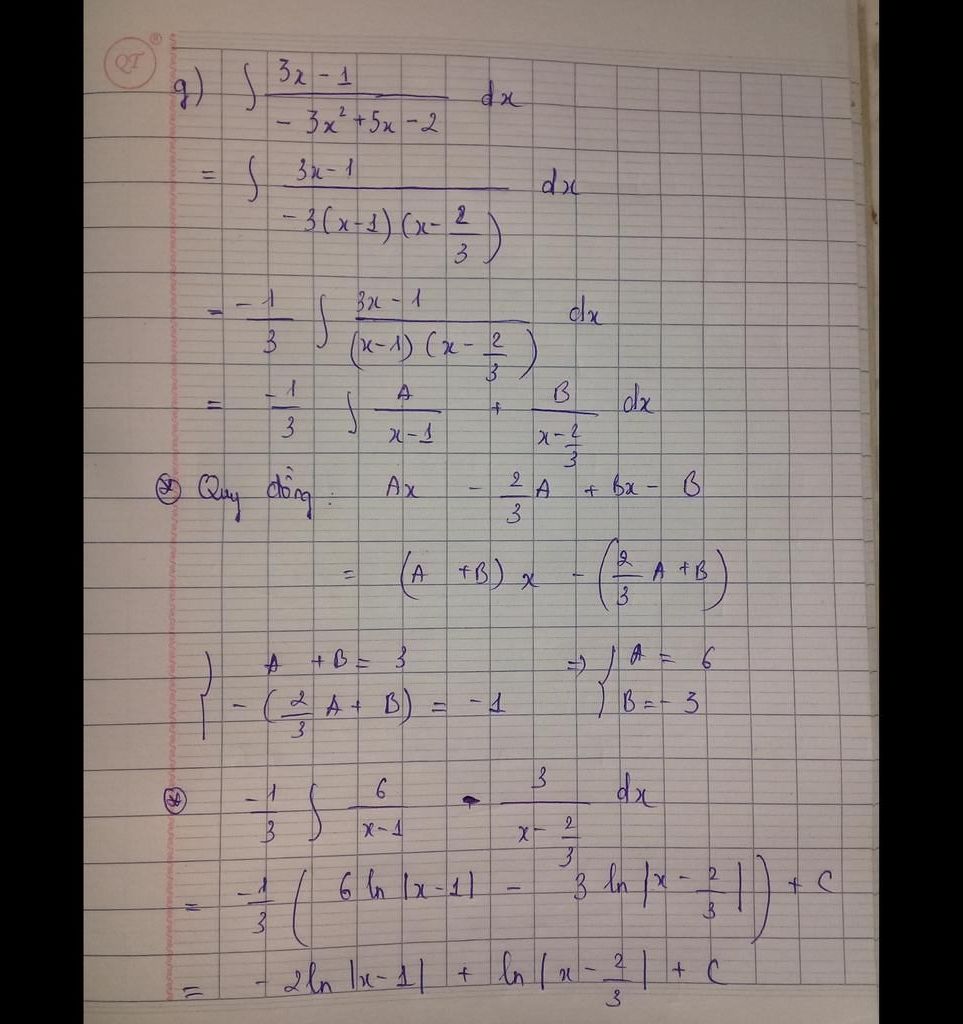 QT
g) ∫ (3x - 1)/(- 3x² + 5x - 2) dx
= ∫ (3x - 1)/(- 3(x - 1)(x - 2/3)) dx
= -1/3 ∫ (3x - 1)/((x - 1)(x - 2/3)) dx
= -1/3 ∫ A/(x - 1) + B/(x - 2/3) dx
* Quy đồng : Ax - 2/3 A + Bx - B
= (A + B) x - (2/3 A + B)
{ A + B = 3 => { A = 6
- (2/3 A + B) = -1 B = - 3
* -1/3 ∫ 6/(x - 1) - 3/(x - 2/3) dx
= -1/3 ( 6 ln |x - 1| - 3 ln |x - 2/3| ) + C
= - 2 ln |x - 1| + ln | x - 2/3 | + C